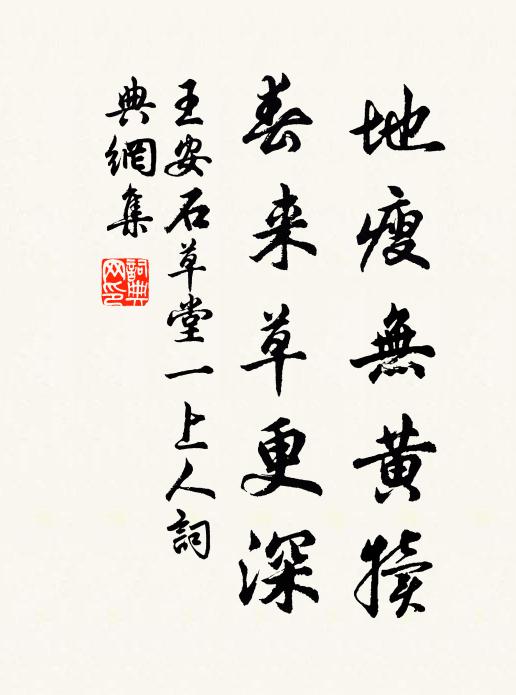 地瘦無黄犢
春来草更深
王安石草堂一上人詞
典網集
詞典
网印